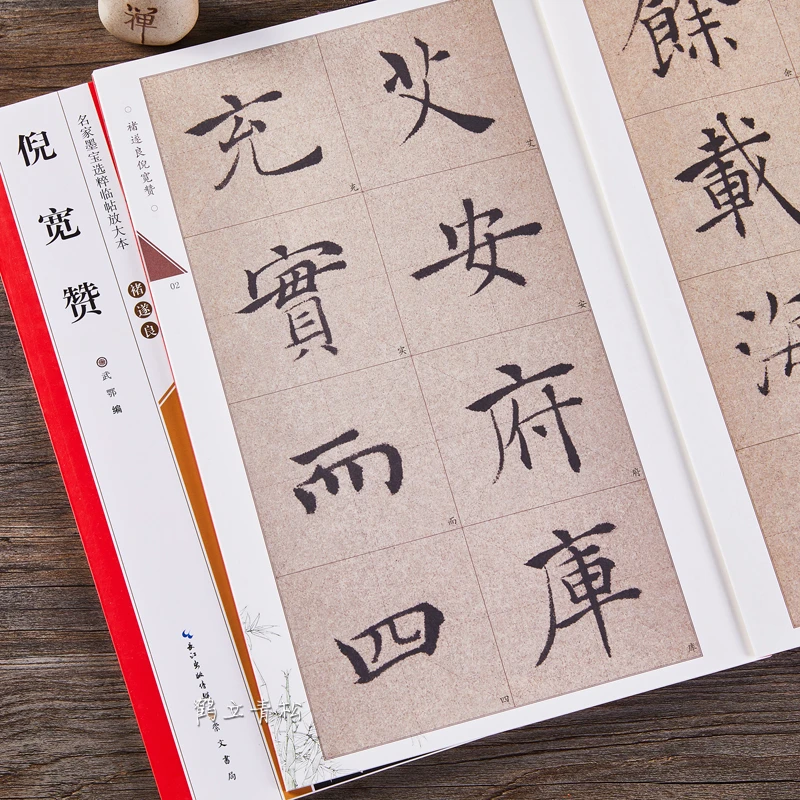 禅
倪宽赞
名家墨宝选粹临帖放大本
褚遂良
武鄂 编
长江出版传媒
崇文书局
褚遂良倪宽赞
02
餘
余
載
海
艾
艾
安
安
府
府
庫
库
充
充
實
实
而
而
四
四
鹤立青松